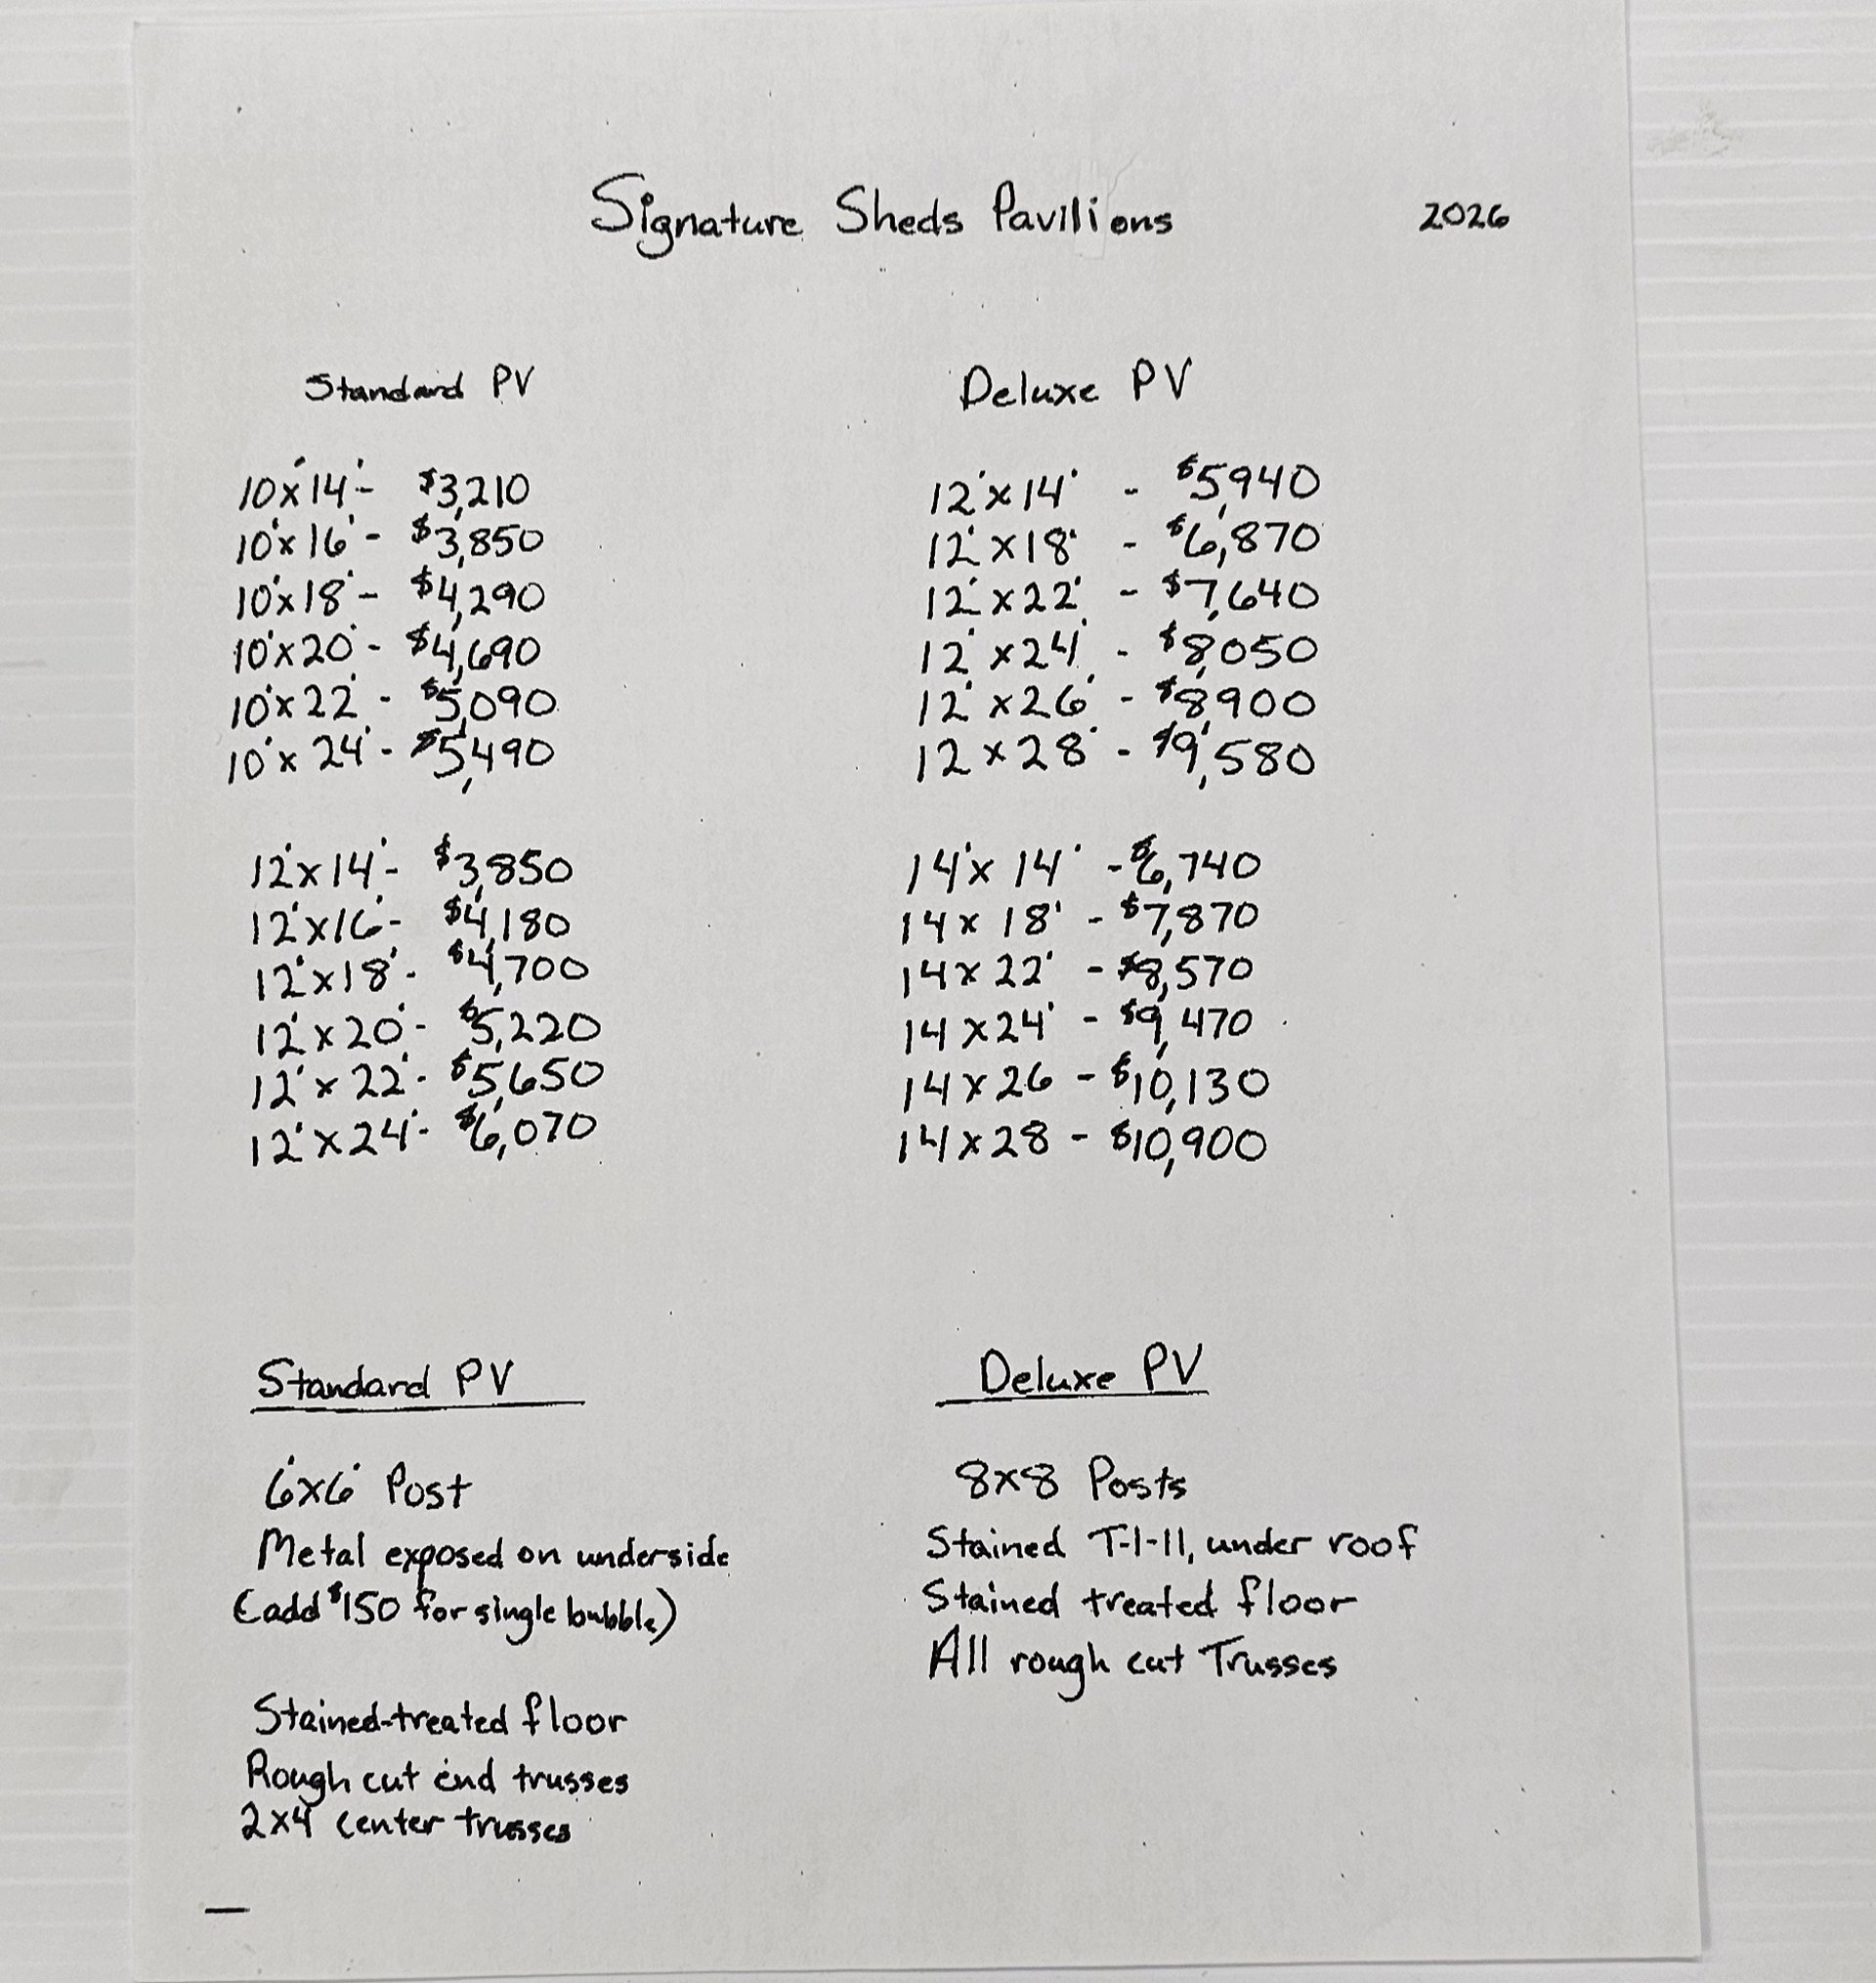 Signature Sheds Pavilions 2026
Standard PV
10'x14'- $3,210
10'x16'- $3,850
10'x18'- $4,290
10'x20'- $4,690
10'x22'- $5,090
10'x24'- $5,490
12'x14'- $3,850
12'x16'- $4,180
12'x18'- $4,700
12'x20'- $5,220
12'x22'- $5,650
12'x24'- $6,070
Deluxe PV
12'x14' - $5,940
12'x18' - $6,870
12'x22' - $7,640
12'x24' - $8,050
12'x26' - $8,900
12x28' - $9,580
14'x14' - $6,740
14x18' - $7,870
14x22' - $8,570
14x24' - $9,470
14x26 - $10,130
14x28 - $10,900
Standard PV
6'x6' Post
Metal exposed on underside
(add $150 for single bubble)
Stained-treated floor
Rough cut end trusses
2x4 center trusses
Deluxe PV
8x8 Posts
Stained T-1-11, under roof
Stained treated floor
All rough cut Trusses